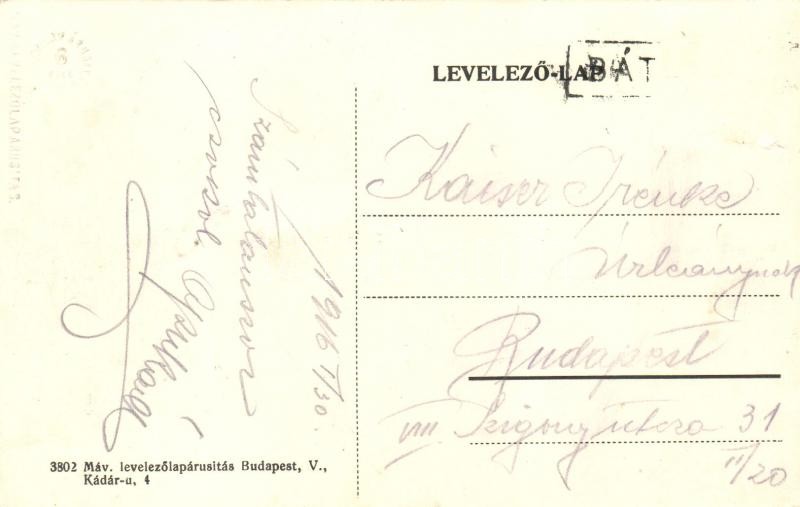 LEVELEZŐ-LAP
BÁT
1916 V/30.
Számtalanszor
csókol
Kaiser Irénke
Úrleánynak
Budapest
VIII Szigony utcza 31
II/20
3802 Máv. levelezőlapárusitás Budapest, V.,
Kádár-u, 4